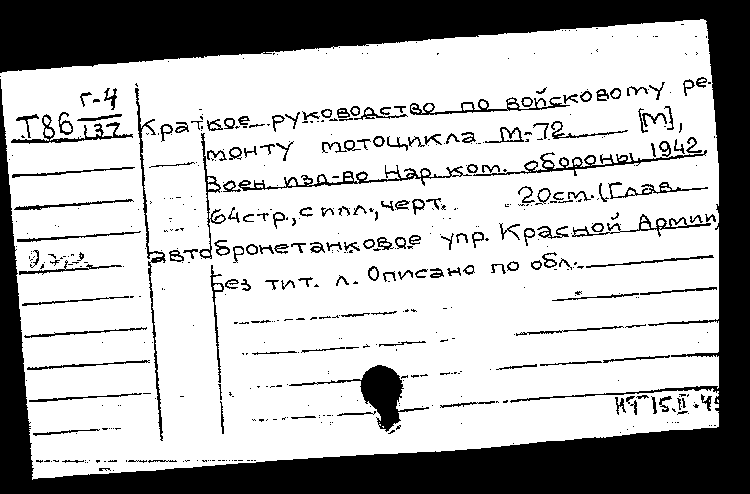 Г-4
Т86 137
Краткое руководство по войсковому ре-
монту мотоцикла М-72. [М],
Воен. изд-во Нар. ком. обороны, 1942.
64стр., с илл., черт. 20см. (Глав.
автобронетанковое упр. Красной Армии)
Без тит. л. Описано по обл.
15.II.45